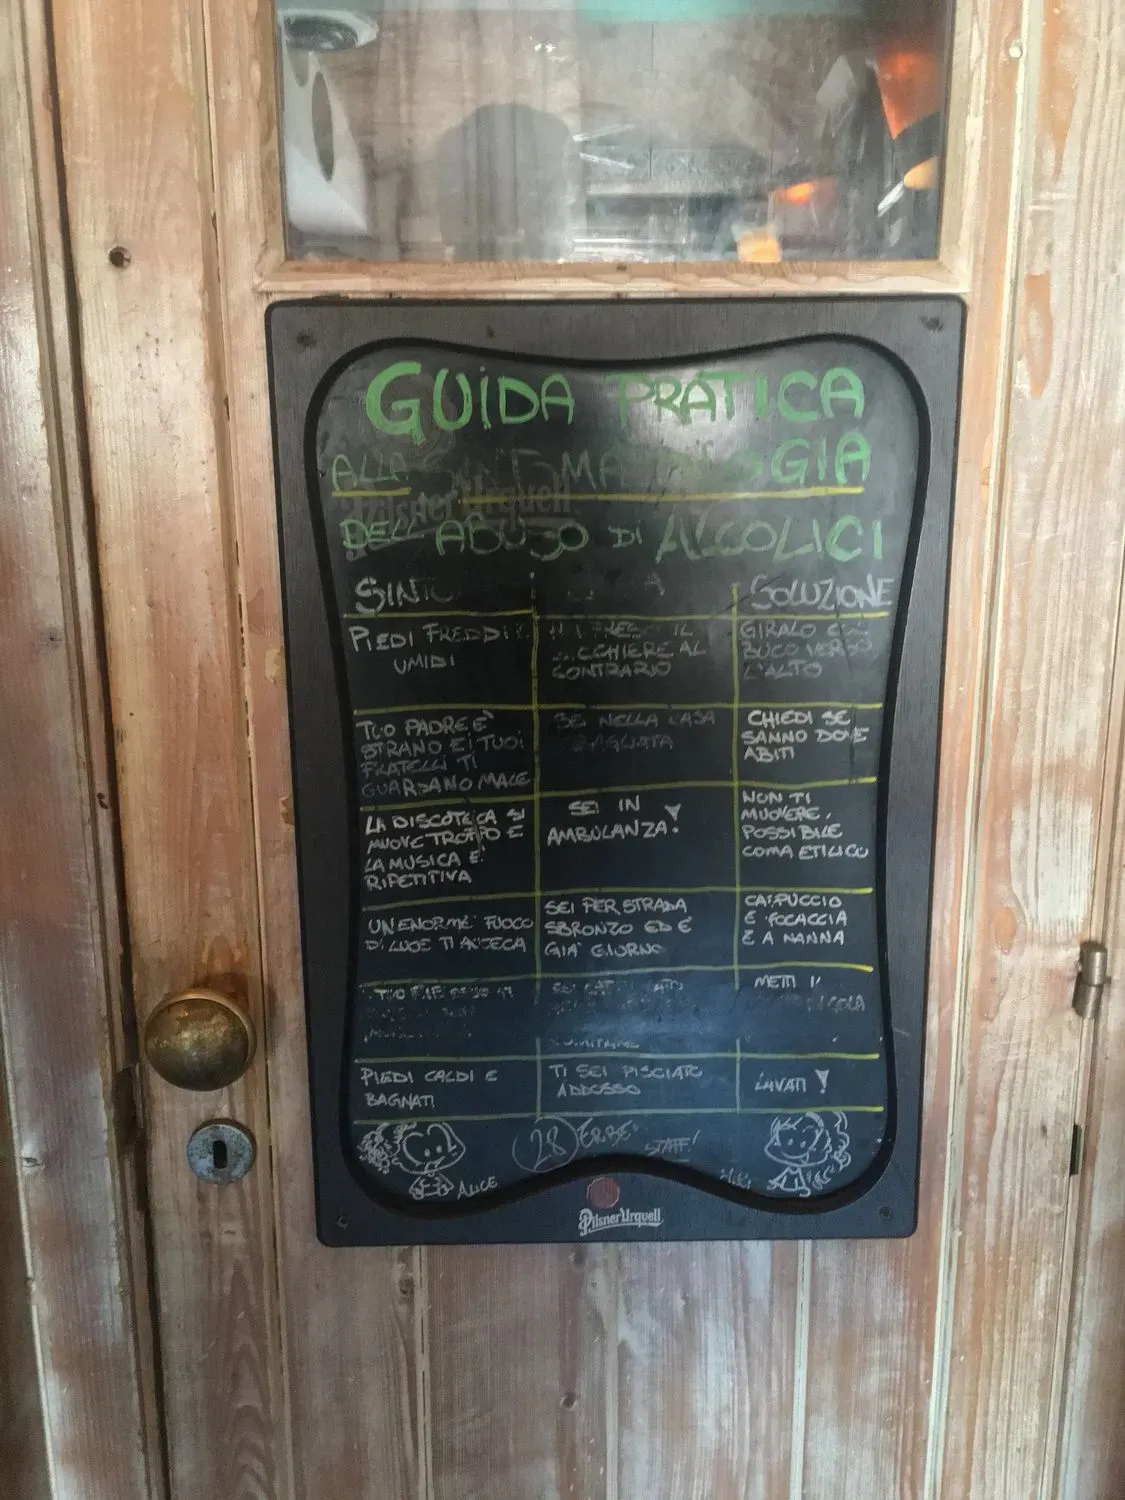 GUIDA PRATICA
ALLA
DELL'ABUSO DI ALCOLICI
SOLUZIONE
PIEDI FREDDI E
UMIDI
IL
AL
CONTRARIO
GIRALO
BUCO VERSO
L'ALTO
TUO PADRE E'
STRANO E I TUOI
FRATELLI TI
GUARDANO MALE
SEI NELLA CASA
CHIEDI SE
SANNO DOVE
ABITI
LA DISCOTECA SI
MUOVE TROPPO E
LA MUSICA E'
RIPETITIVA
SEI IN
AMBULANZA!
NON TI
MUOVERE.
POSSIBILE
COMA ETILICO
UN'ENORME FUOCO
DI LUCE TI ACCECA
SEI PER STRADA
SBRONZO ED E'
GIA' GIORNO
CAPPUCCIO
E FOCACCIA
E A NANNA
METTI
PIEDI CALDI E
BAGNATI
TI SEI PISCIATO
ADDOSSO
LAVATI!
28 ERBE
STAFF!
ALICE
Pilsner Urquell